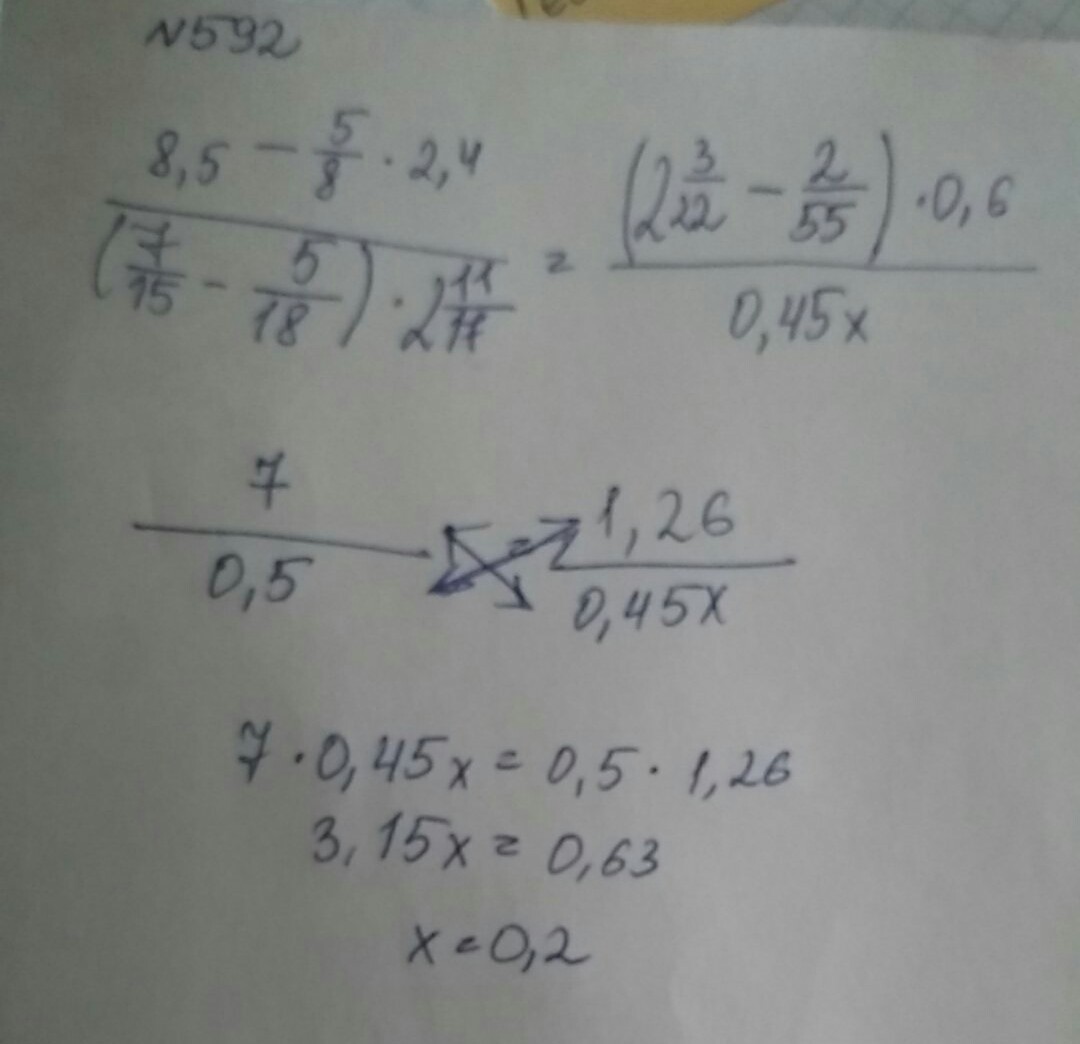 N592
(8,5 - 5/8 · 2,4) / ((7/15 - 5/18) · 2 11/17) = ((2 3/22 - 2/55) · 0,6) / (0,45x)
7 / 0,5 = 1,26 / 0,45x
7 · 0,45x = 0,5 · 1,26
3,15x = 0,63
x = 0,2